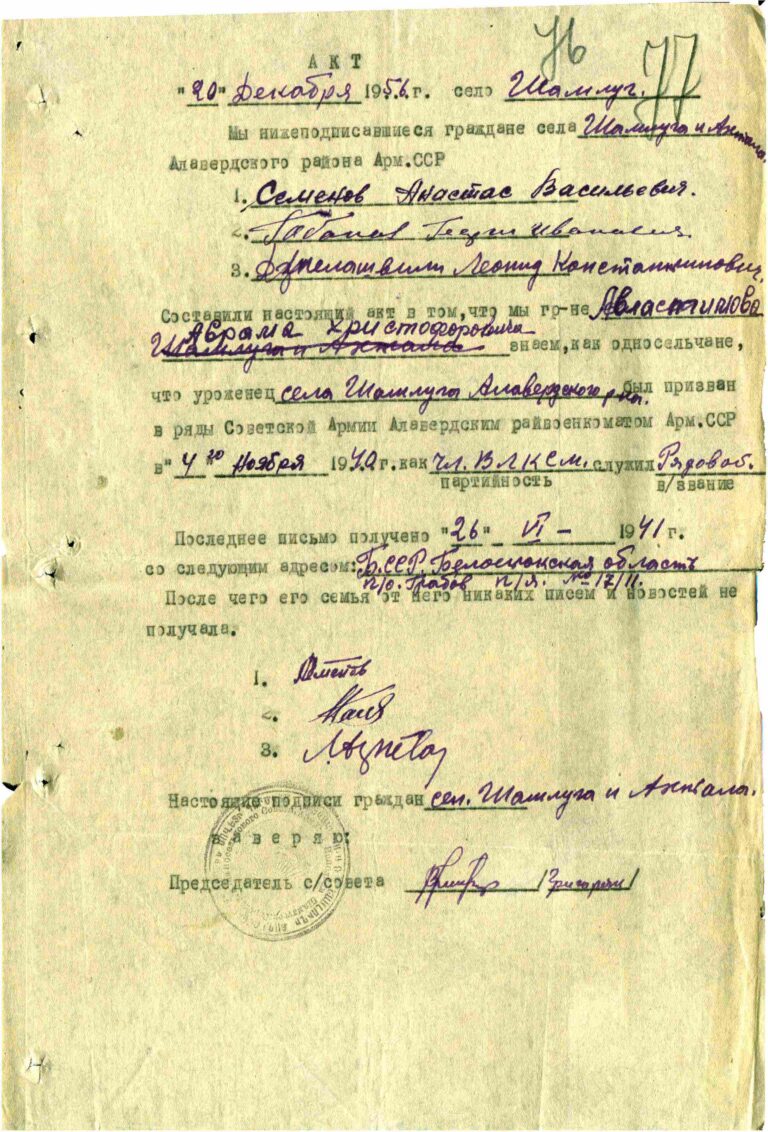 76 77
АКТ
"20" Декабря 1956 г. село Шамлуг.
Мы нижеподписавшиеся граждане села Шамлуга и Ахтала,
Алавердского района Арм.ССР
1. Семенов Анастас Васильевич.
2. Иванович.
3. Леонид Константинович,
Составили настоящий акт в том, что мы гр-не Авластимова
Аврама Христофоровича
Шамлуга и Ахтала знаем, как односельчане,
что уроженец села Шамлуга Алавердского р-на. был призван
в ряды Советской Армии Алавердским райвоенкоматом Арм.ССР
в "4 го Ноября 1940 г. как Чл. ВЛКСМ. служил Рядовой.
партийность в/звание
Последнее письмо получено "26" VI - 1941 г.
со следующим адресом: Б.ССР. Белостокская область
п/о. Грабов п/я. № 17/11.
После чего его семья от него никаких писем и новостей не
получала.
1.
2.
3.
Настоящие подписи граждан сел. Шамлуга и Ахтала.
заверяю:
Председатель с/совета /Григорян/